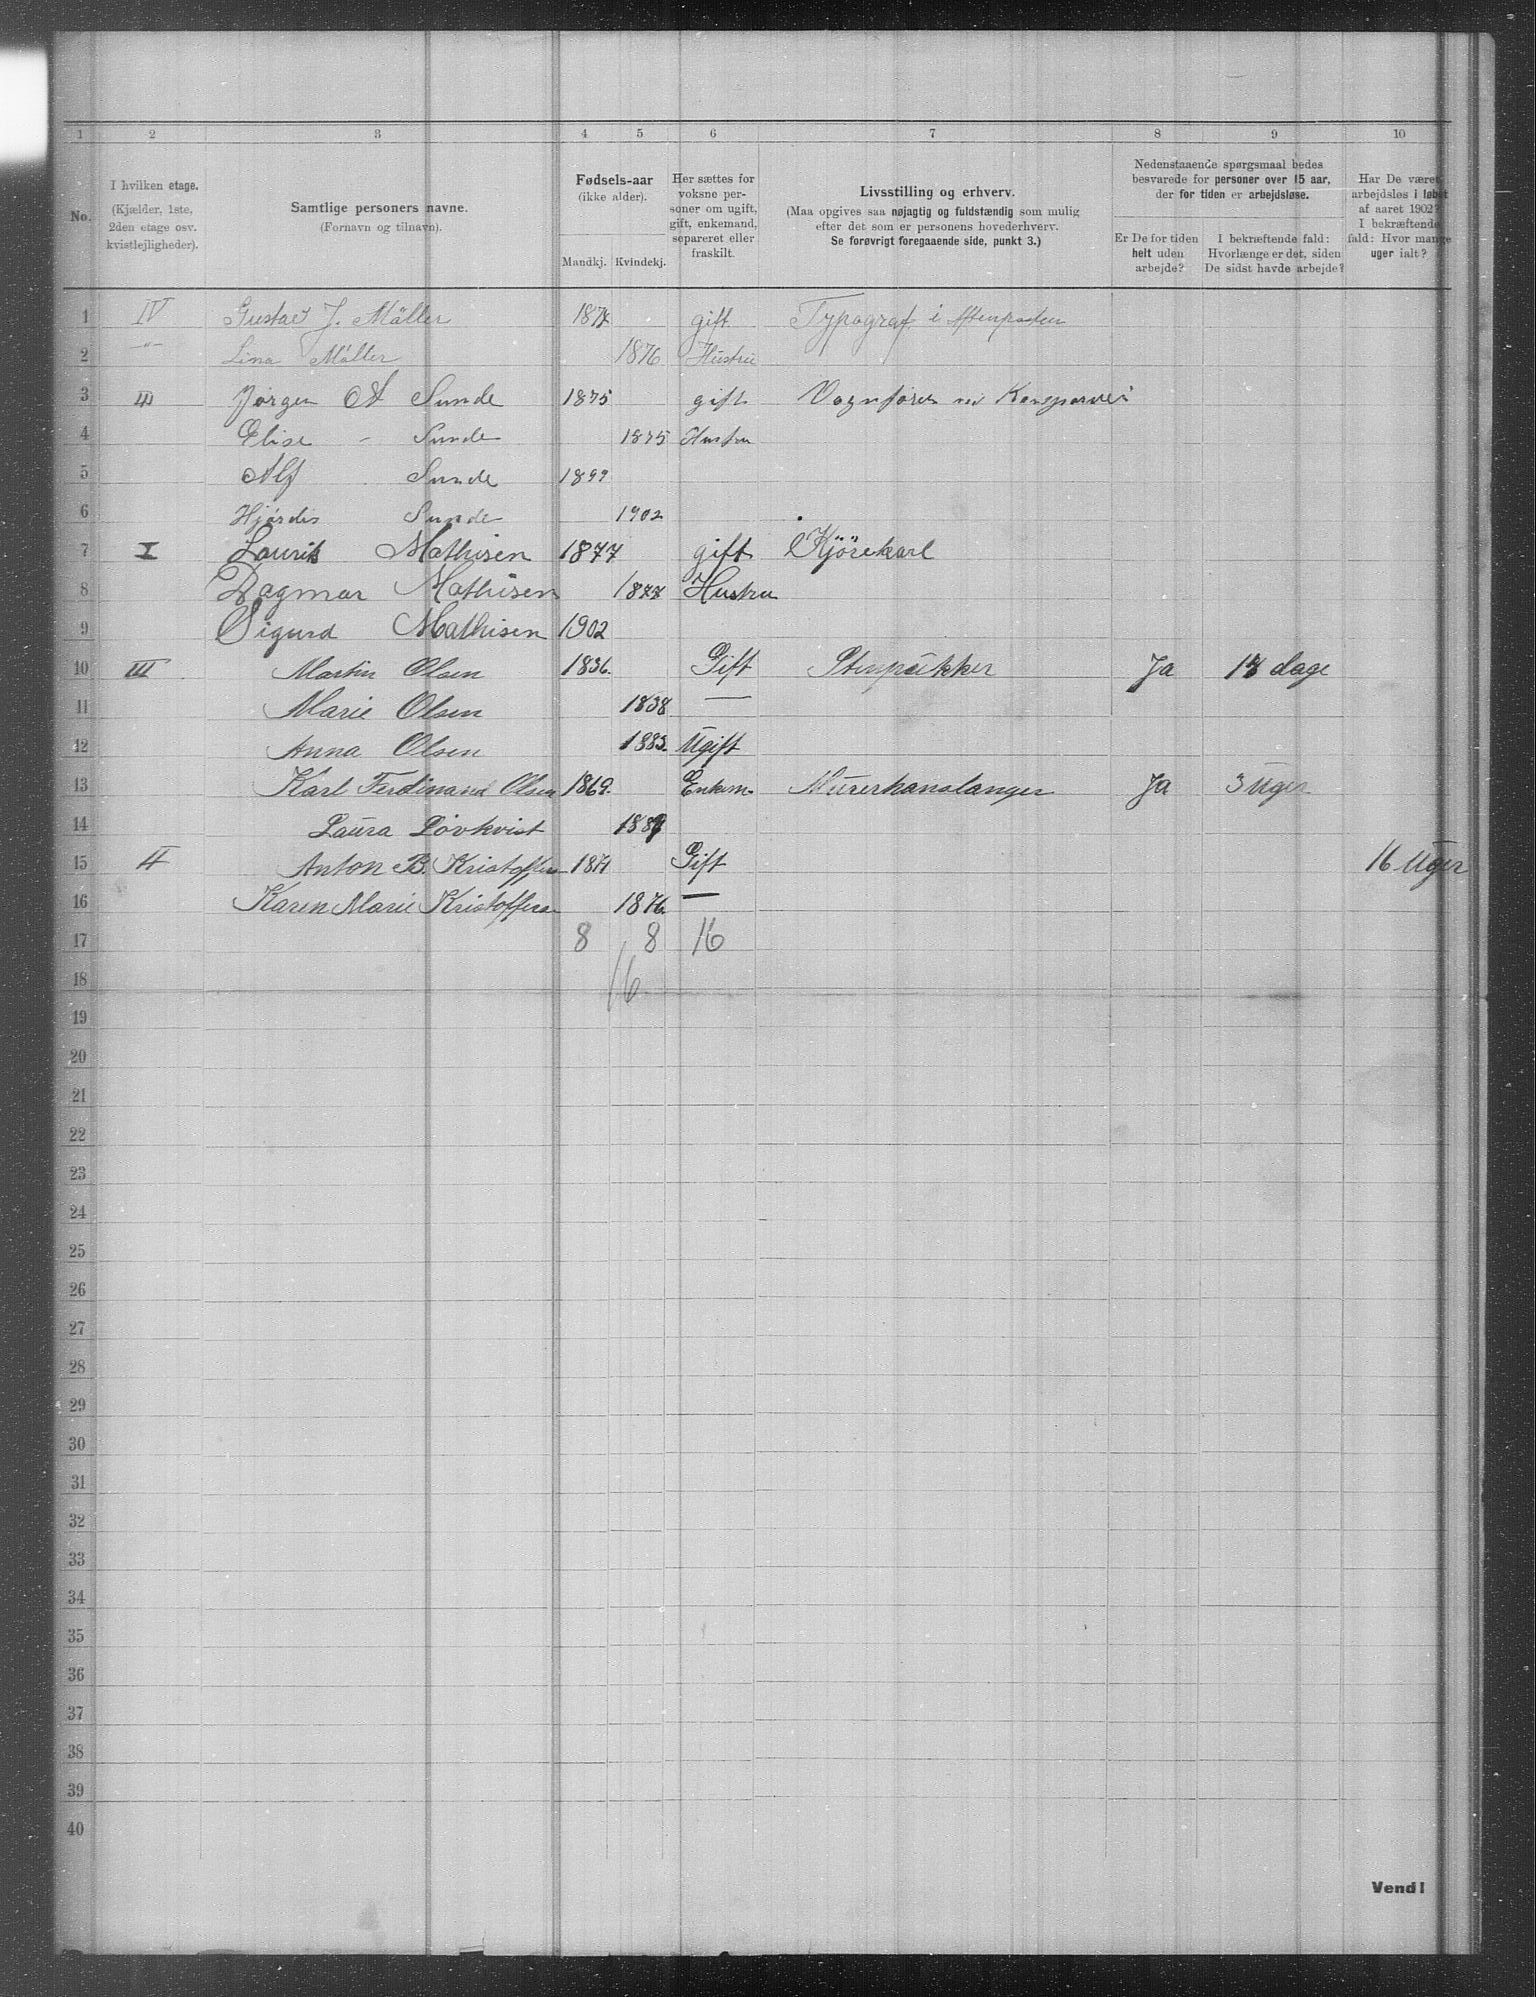 1 2 3 4 5 6 7 8 9 10
No.
I hvilken etage.
(Kjælder, 1ste,
2den etage osv.
kvistlejligheder).
Samtlige personers navne.
(Fornavn og tilnavn).
Fødsels-aar
(ikke alder).
Mandkj. Kvindekj.
Her sættes for
voksne per-
soner om ugift,
gift, enkemand,
separeret eller
fraskilt.
Livsstilling og erhverv.
(Maa opgives saa nøjagtig og fuldstændig som mulig
efter det som er personens hovederhverv.
Se forøvrigt foregaaende side, punkt 3.)
Nedenstaaende spørgsmaal bedes
besvarede for personer over 15 aar,
der for tiden er arbejdsløse.
Er De for tiden
helt uden
arbejde?
I bekræftende fald:
Hvorlænge er det, siden
De sidst havde arbejde?
Har De været
arbejdsløs i løbet
af aaret 1902?
I bekræftende
fald: Hvor mange
uger ialt?
1 IV Gustav J. Mäller gift Typograf i Aftenposten
2 -"- Lina Mäller 1876 Hustru
3 III Jørgen A Sunde 1875 gift Vognfører
4 Elise - Sunde 1875 Hustru
5 Alf Sunde 1899
6 Hjördis Sunde 1902
7 I Laurits Mathisen 1877 gift Kjörekarl
8 Dagmar Mathisen 1877 Hustru
9 Sigurd Mathisen 1902
10 III Martin Olsen 1836. Gift Stenpikker Ja dage
11 Marie Olsen 1838 —
12 Anna Olsen 1883. Ugift
13 Karl Ferdinand Olsen 1869. Enkem. Murerhanslanger Ja 3 Uger
14 Laura Lövkvist
15 II Anton B. Kristoffers 1871 Gift 16 Uger
16 Karen Marie Kristoffersn 1876. —
17 8 8 16
18 16
19
20
21
22
23
24
25
26
27
28
29
30
31
32
33
34
35
36
37
38
39
40
Vend!